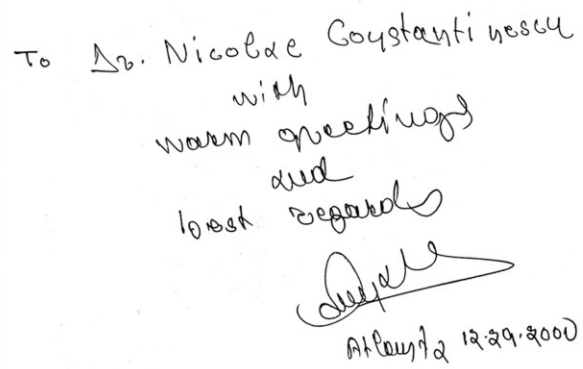 To Dr. Nicolae Constantinescu
with
warm greetings
and
best regards
Atlanta 12.29.2000